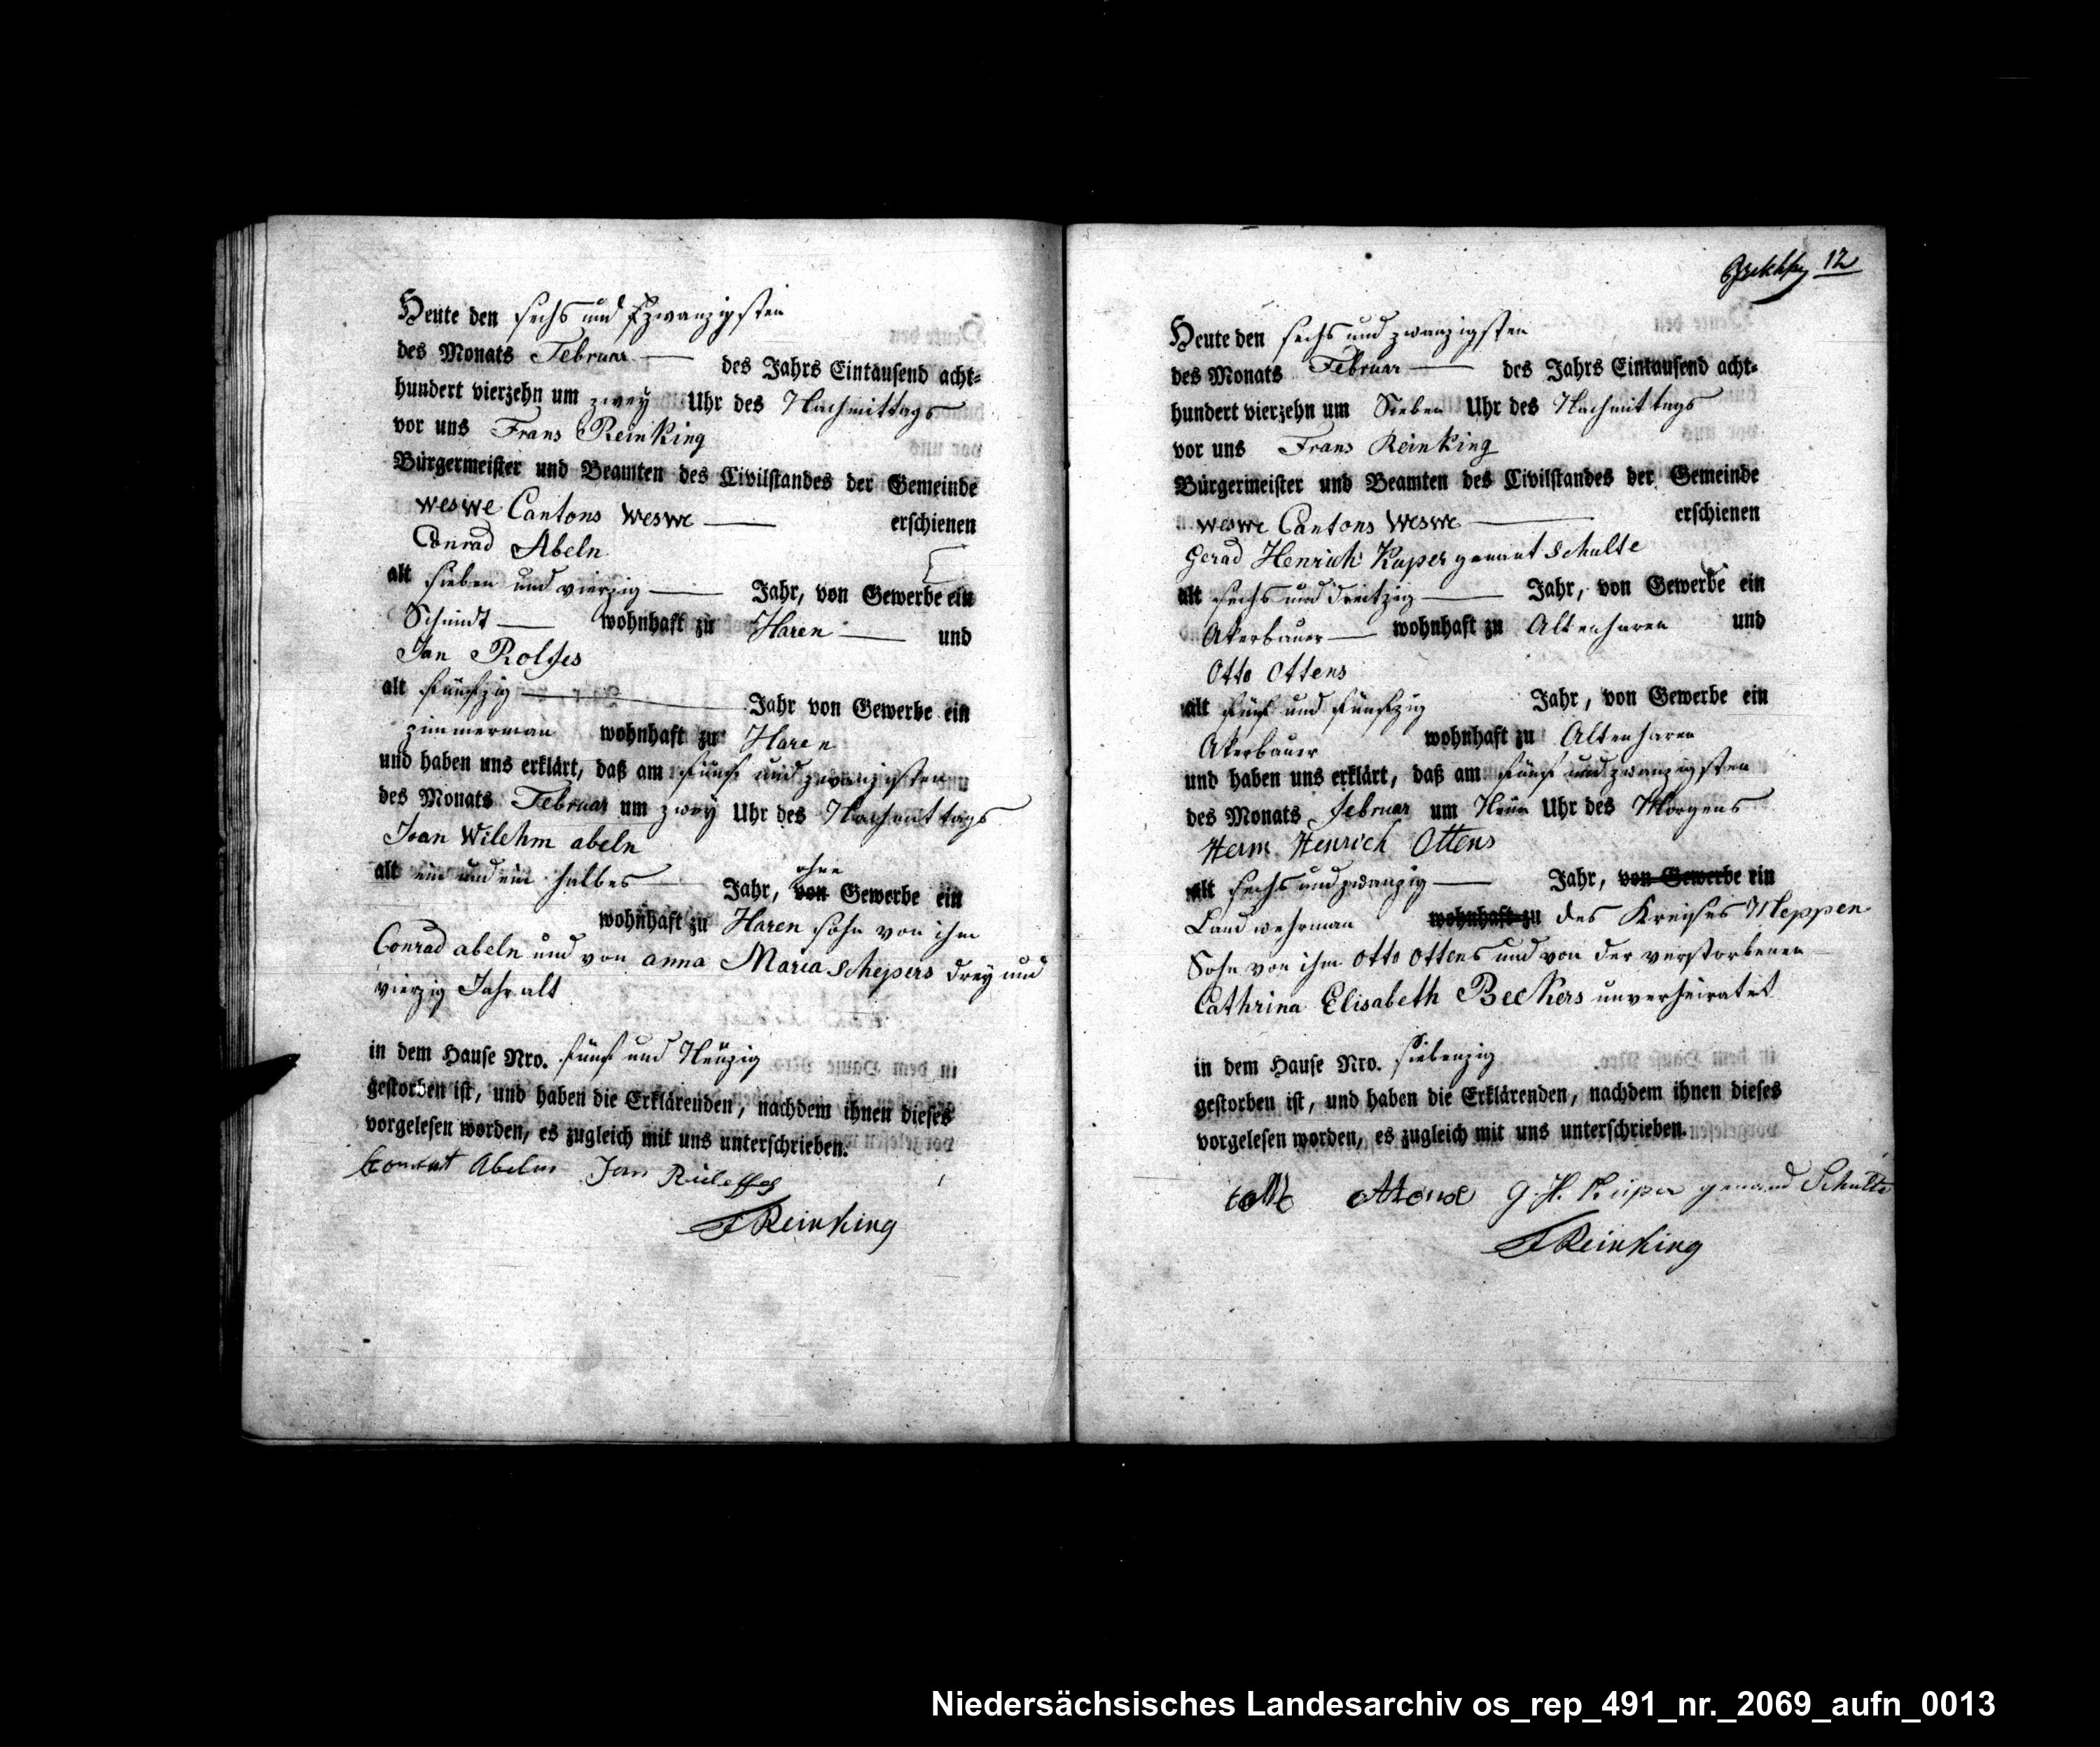 Heute den sechs und zwanzigsten
des Monats Februar des Jahrs Eintausend acht-
hundert vierzehn um zwey Uhr des Nachmittags
vor uns Frans Reinking
Bürgermeister und Beamten des Civilstandes der Gemeinde
weswe Cantons weswe erschienen
Conrad Abeln
alt sieben und vierzig Jahr, von Gewerbe ein
Schmidt wohnhaft zu Haren und
Jan Rolfes
alt fünfzig Jahr von Gewerbe ein
zimmerman wohnhaft zu Haren
und haben uns erklärt, daß am fünf und zwanzigsten
des Monats Februar um zwey Uhr des Nachmittags
Joan Wilehm abeln
alt ein und ein halbes Jahr, ohne von Gewerbe ein
wohnhaft zu Haren sohn von ihm
Conrad abeln und von anna Maria schepers drey und
vierzig Jahr alt
in dem Hause Nro. fünf und Neüzig
gestorben ist, und haben die Erklärenden, nachdem ihnen dieses
vorgelesen worden, es zugleich mit uns unterschrieben.
Conrat Abeln Jan
F Reinking
12
Heute den sechs und zwanzigsten
des Monats Februar des Jahrs Eintausend acht-
hundert vierzehn um Sieben Uhr des Nachmittags
vor uns Frans Reinking
Bürgermeister und Beamten des Civilstandes der Gemeinde
weswe Cantons weswe erschienen
Gerad Henrich Kuper genant Schulte
alt sechs und dreitzig Jahr, von Gewerbe ein
Akerbauer wohnhaft zu Altenharen und
Otto Ottens
alt fünf und fünfzig Jahr, von Gewerbe ein
Akerbauer wohnhaft zu Altenharen
und haben uns erklärt, daß am fünf und zwanzigsten
des Monats februar um Neün Uhr des Morgens
Herm Henrich Ottens
alt sechs und zwanzig Jahr, von Gewerbe ein
Landwehrman wohnhaft zu des Kreises Meppen
Sohn von ihm Otto Ottens und von der verstorbenen
Cathrina Elisabeth Beckers unverheiratet
in dem Hause Nro. siebenzig
gestorben ist, und haben die Erklärenden, nachdem ihnen dieses
vorgelesen worden, es zugleich mit uns unterschrieben.
G. H. Küper genand Schulte
F Reinking
Niedersächsisches Landesarchiv os_rep_491_nr._2069_aufn_0013